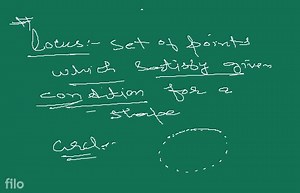 # Locus:- set of points
which satisfy given
condition for a
- shape
Circle:-
filo